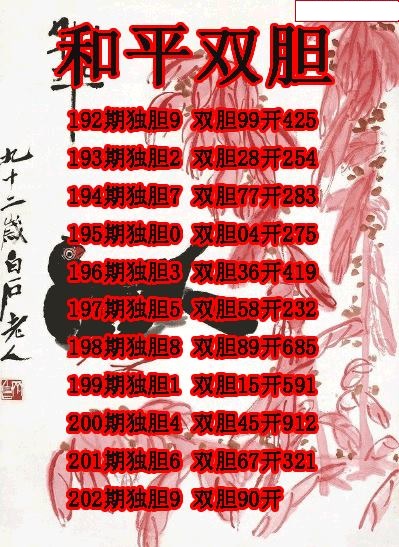 和平双胆
192期独胆9 双胆99开425
193期独胆2 双胆28开254
194期独胆7 双胆77开283
195期独胆0 双胆04开275
196期独胆3 双胆36开419
197期独胆5 双胆58开232
198期独胆8 双胆89开685
199期独胆1 双胆15开591
200期独胆4 双胆45开912
201期独胆6 双胆67开321
202期独胆9 双胆90开
九十二岁白石老人